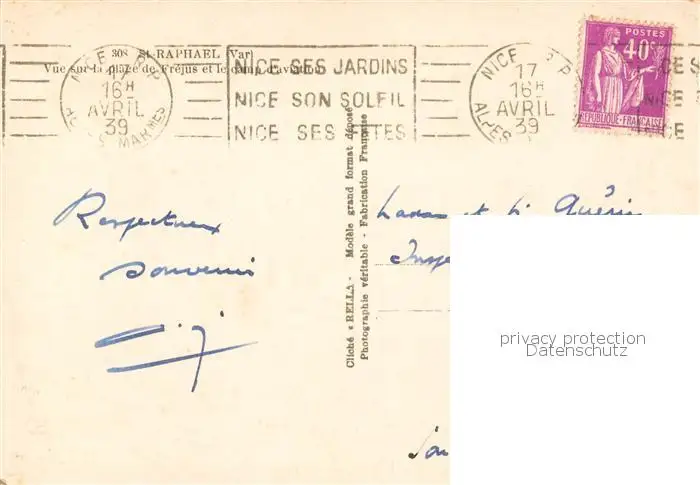 308 St-RAPHAEL (Var)
Vue sur la plage de Fréjus et le camp d'aviation
NICE
17
16H
AVRIL
39
NICE SES JARDINS
NICE SON SOLEIL
NICE SES FÊTES
NICE
17
16H
AVRIL
39
ALPES
POSTES
40c
REPUBLIQUE-FRANÇAISE
Respectueux
souvenir
Cliché « RELLA » - Modèle grand format déposé
Photographie véritable - Fabrication Française
et Guérin
privacy protection
Datenschutz